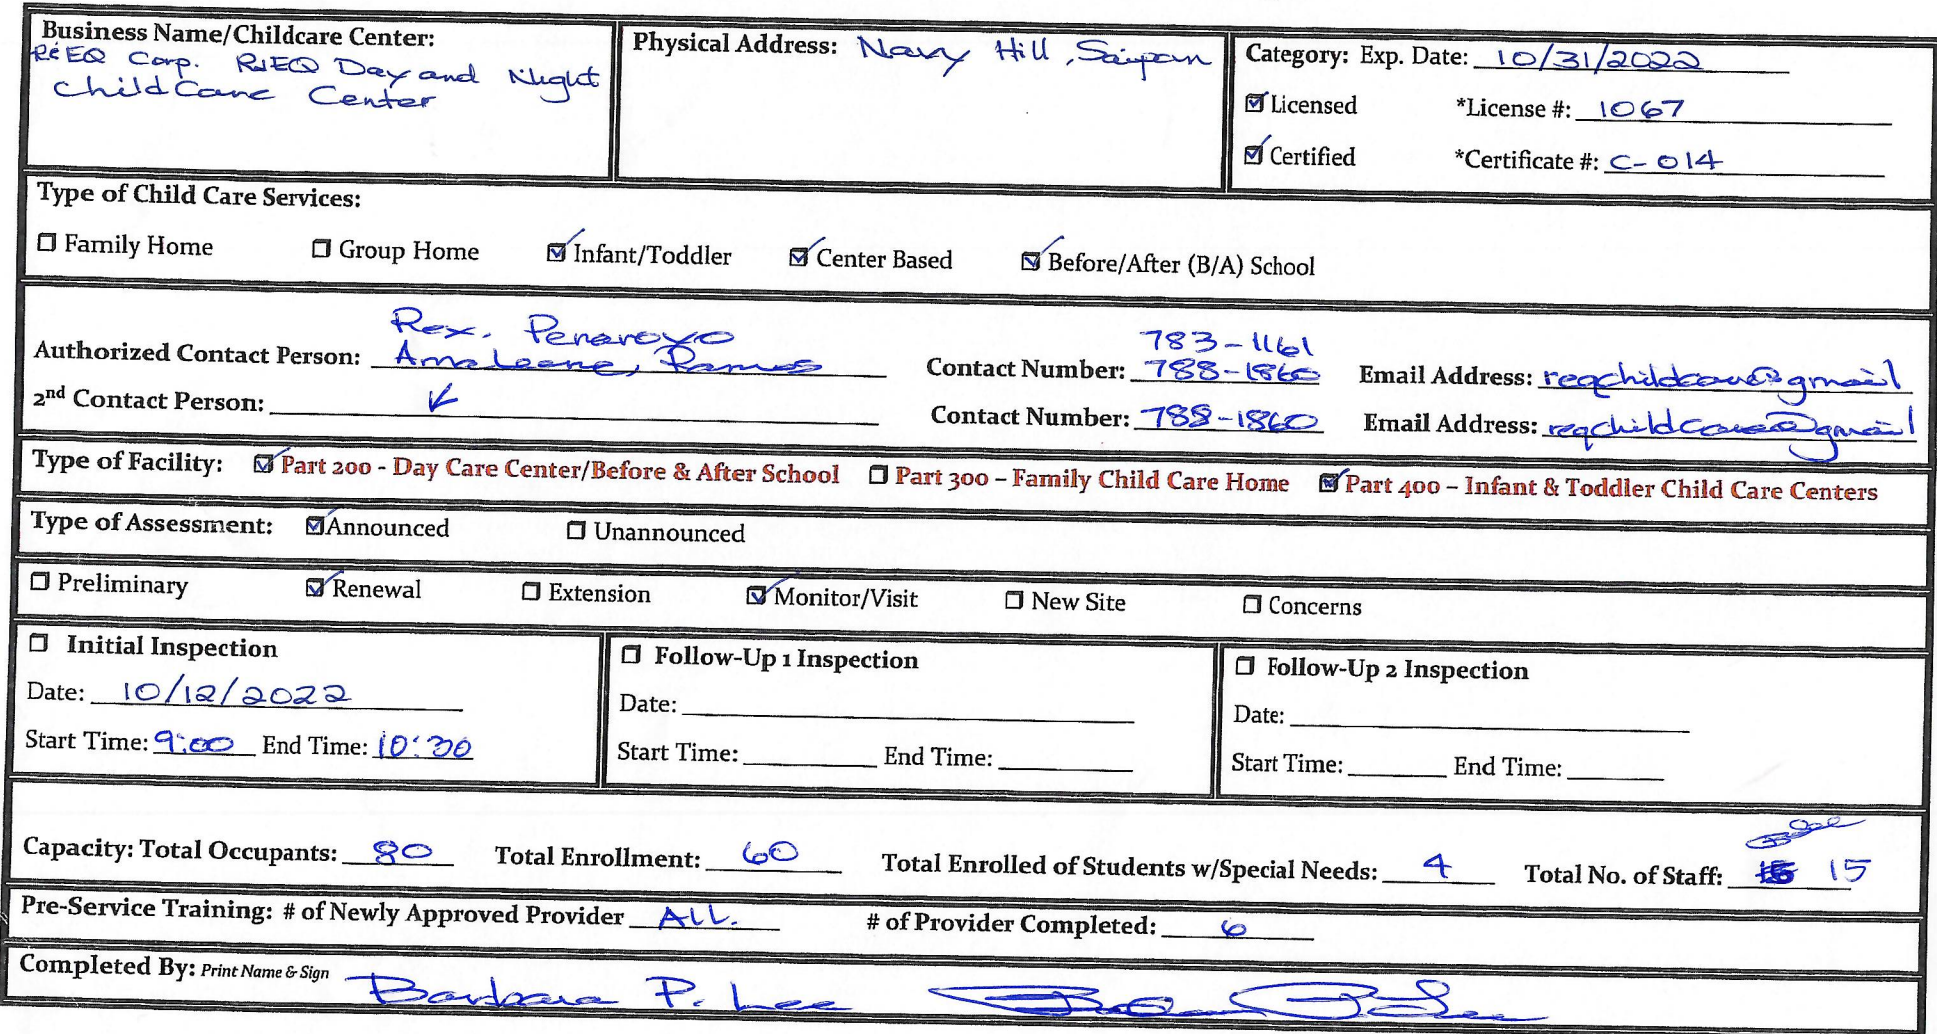 Business Name/Childcare Center:
R&EQ Corp. R&EQ Day and Night
ChildCare Center
Physical Address: Navy Hill, Saipan
Category: Exp. Date: 10/31/2022
☑ Licensed *License #: 1067
☑ Certified *Certificate #: C-014
Type of Child Care Services:
☐ Family Home ☐ Group Home ☑ Infant/Toddler ☑ Center Based ☑ Before/After (B/A) School
Rex. 783-1161
Authorized Contact Person: Ramos Contact Number: 788-1860 Email Address: reqchildcare@gmail
2nd Contact Person: Contact Number: 788-1860 Email Address: reqchildcare@gmail
Type of Facility: ☑ Part 200 - Day Care Center/Before & After School ☐ Part 300 – Family Child Care Home ☑ Part 400 – Infant & Toddler Child Care Centers
Type of Assessment: ☑ Announced ☐ Unannounced
☐ Preliminary ☑ Renewal ☐ Extension ☑ Monitor/Visit ☐ New Site ☐ Concerns
☐ Initial Inspection
Date: 10/12/2022
Start Time: 9:00 End Time: 10:30
☐ Follow-Up 1 Inspection
Date:
Start Time: End Time:
☐ Follow-Up 2 Inspection
Date:
Start Time: End Time:
Capacity: Total Occupants: 80 Total Enrollment: 60 Total Enrolled of Students w/Special Needs: 4 Total No. of Staff: 15
Pre-Service Training: # of Newly Approved Provider ALL. # of Provider Completed: 6
Completed By: Print Name & Sign Barbara P. Lee